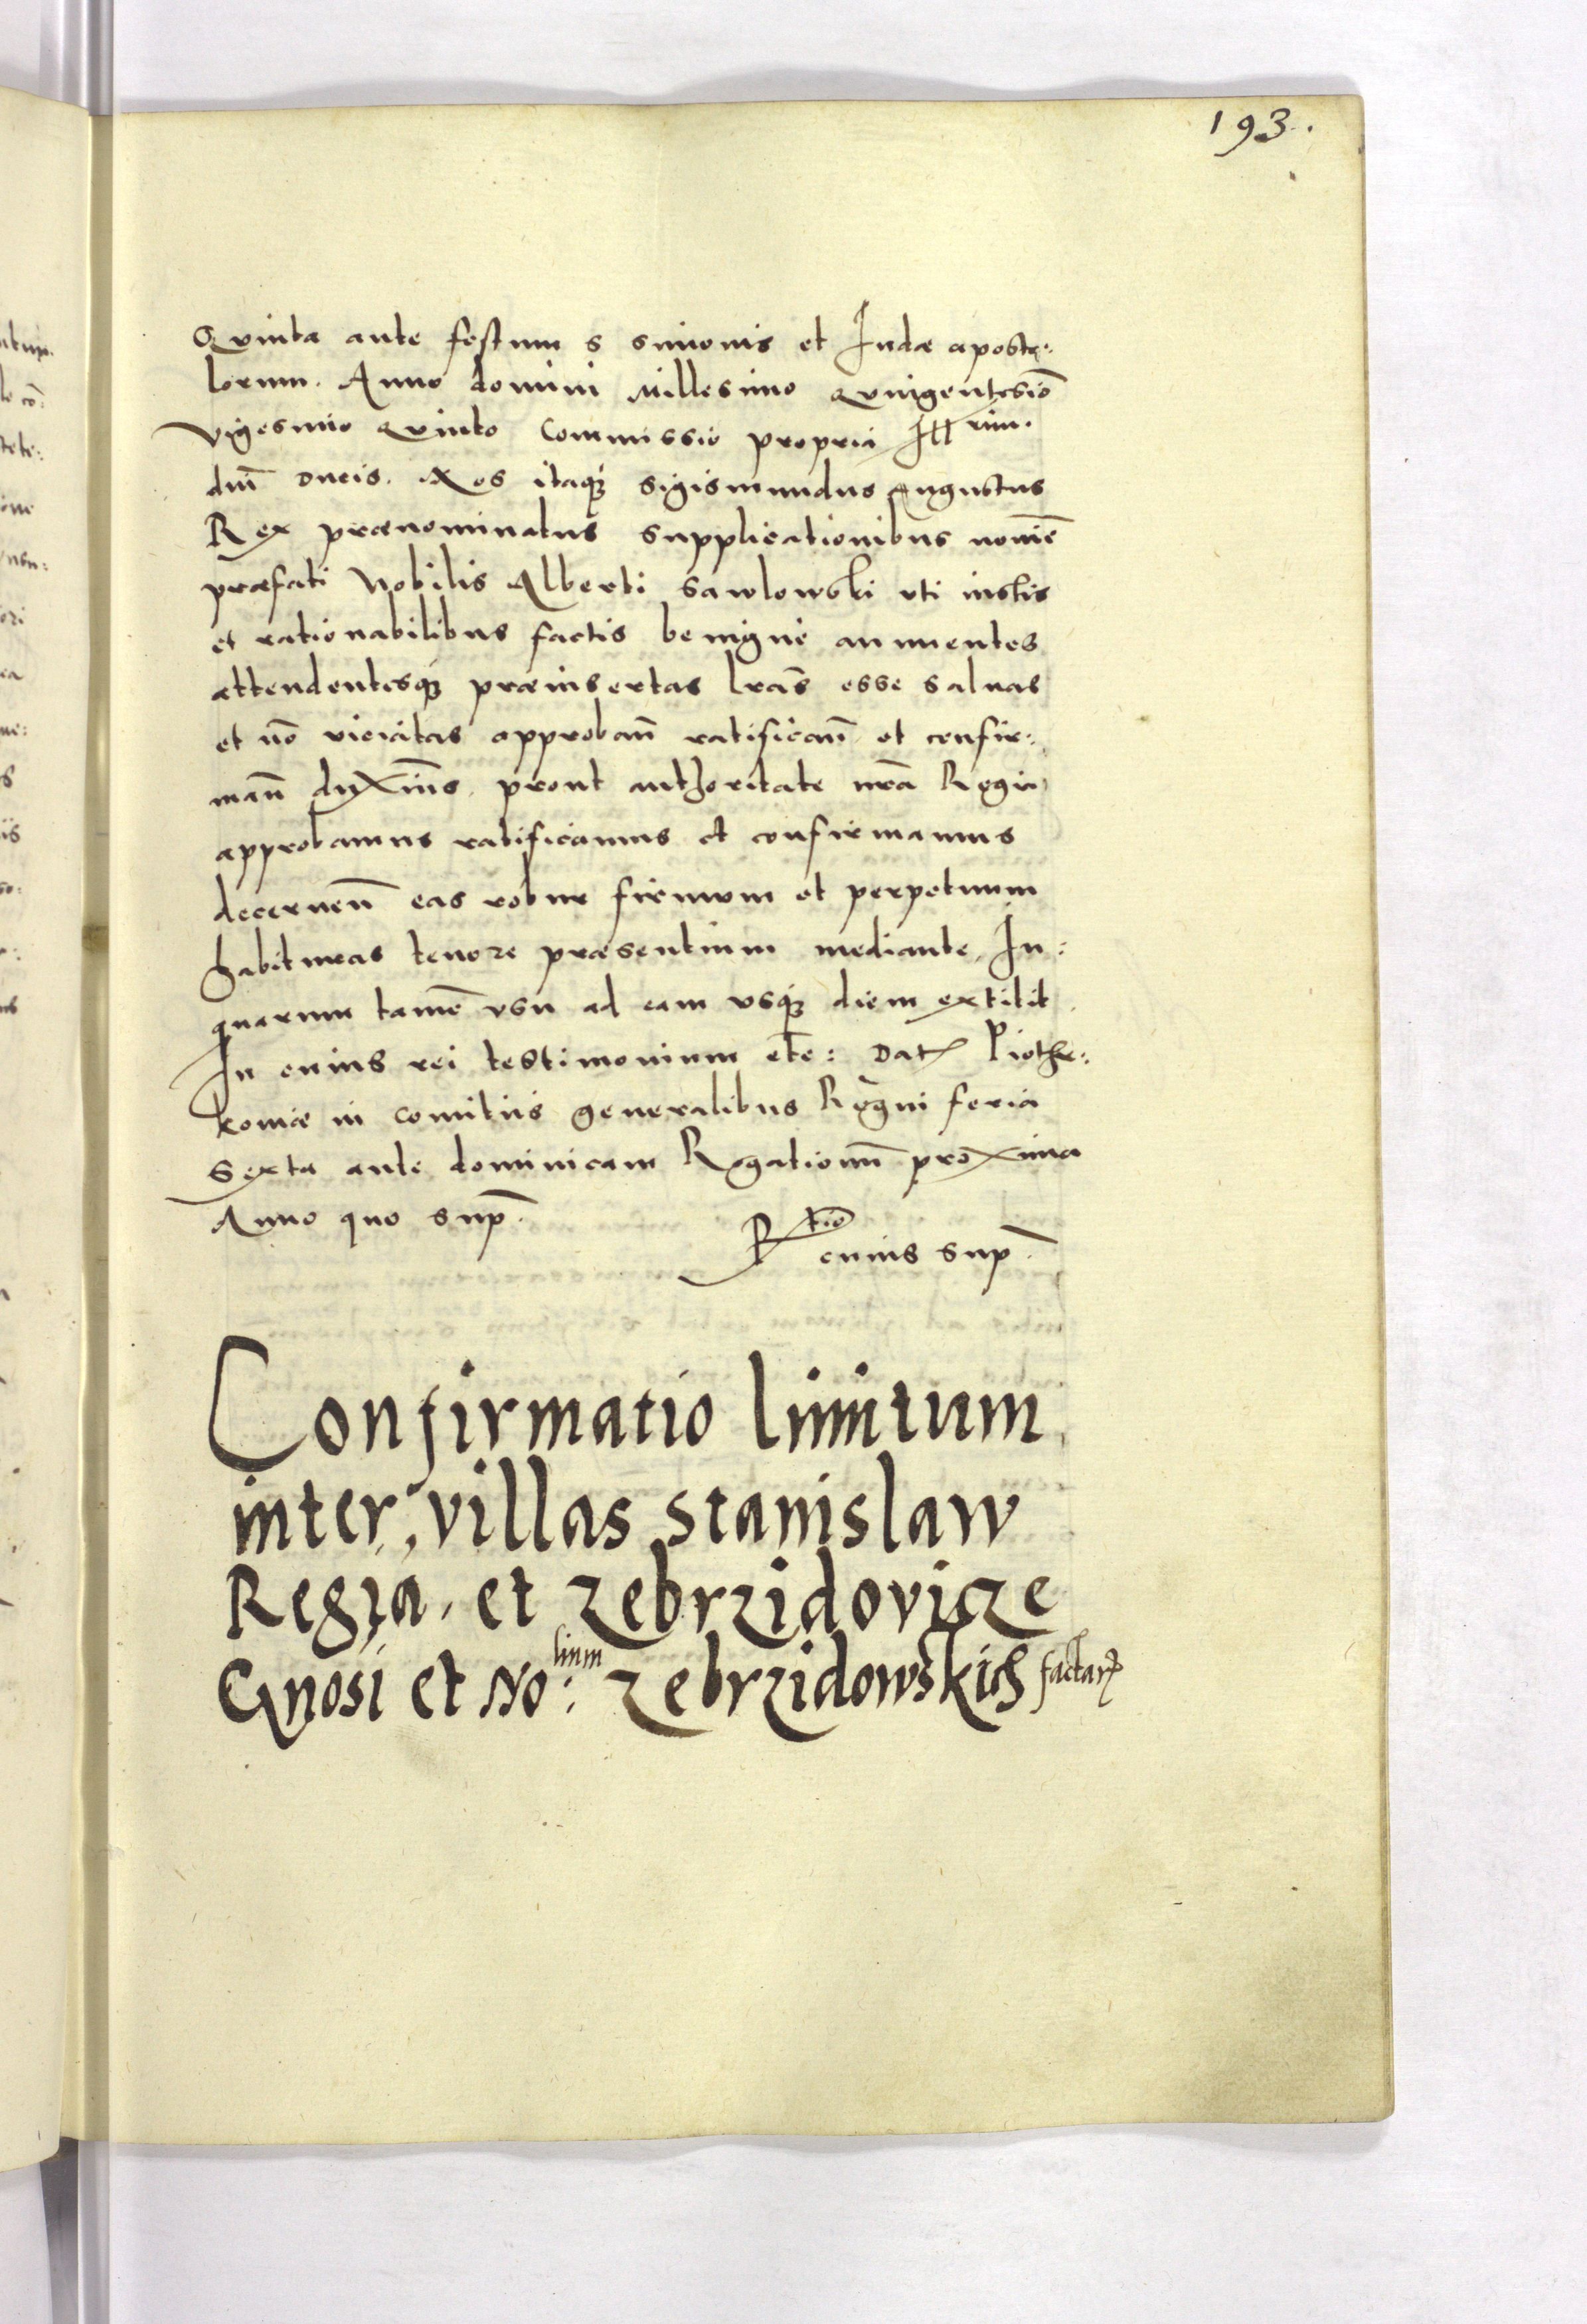 193.
Quinta ante festum s simonis et Iudæ aposto:
lorum. Anno domini Millesimo Quingentesiō
vigesimo Quinto Commissio propria Ill rim.
dn̄i Ducis. Nos itaq; Sigismundus Augustus
Rex prænominatus supplicationibus nomīe
præfati Nobilis Alberti Sawlowski uti iustis
et rationabilibus factis benigne annuentes
attendentesq; præinsertas lr̄as esse saluas
et nō viciatas approban̄ ratifican̄ et confir:
man̄ duximꝰ. prout authoritate nr̄a Regia
approbamus ratificamus et confirmamus
decernen̄ eas robur firmum et perpetuum
habituras tenore præsentium mediante, In
quarum tamē usu ad eam usq; diem extitit.
In cuius rei testimonium etc: Dat Piothr:
koviæ in comitiis generalibus Regni feria
Sexta ante dominicam Rogationū proxima
Anno quo sup̄.
R tio
cuius sup̄.
Confirmatio limitum
inter villas Stanislaw
Regia, et Zebrzidovicze
Gnosi et No: lium Zebrzidowskich factarꝫ